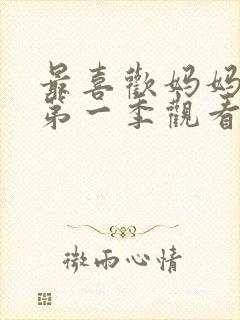 最喜歡妈妈
第一季觀看
微雨心情